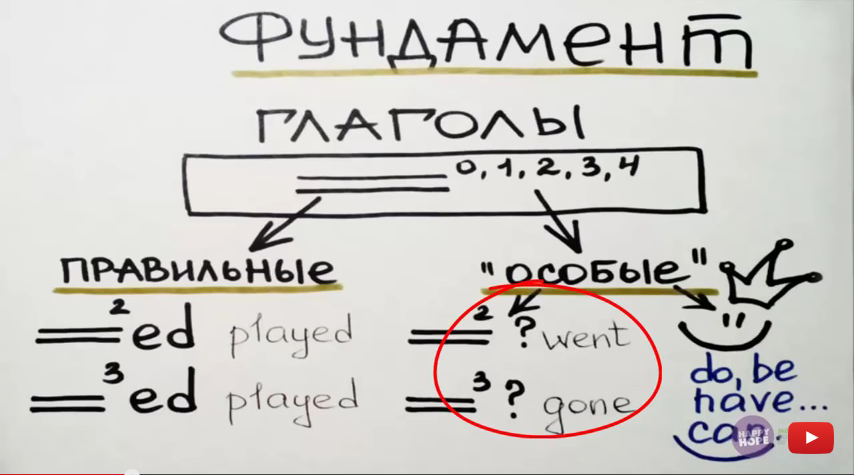 ФУНДАМЕНТ
ГЛАГОЛЫ
0, 1, 2, 3, 4
ПРАВИЛЬНЫЕ
"ОСОБЫЕ"
2 ed played
3 ed played
2 ? went
3 ? gone
do, be
have...
can.
HAPPY
HOPE